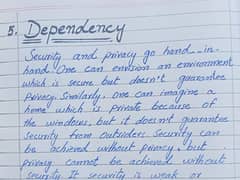 5. Dependency
Security and privacy go hand-in-
hand. One can envision an environment
which is secure but doesn't guarantee
Privecy. Similarly, one can imagine a
home which is private because of
the windows, but it doesn't guarantee
security from outsiders. Security can
be achieved without privacy, but
privacy cannot be achieved without
security. It security is weak or